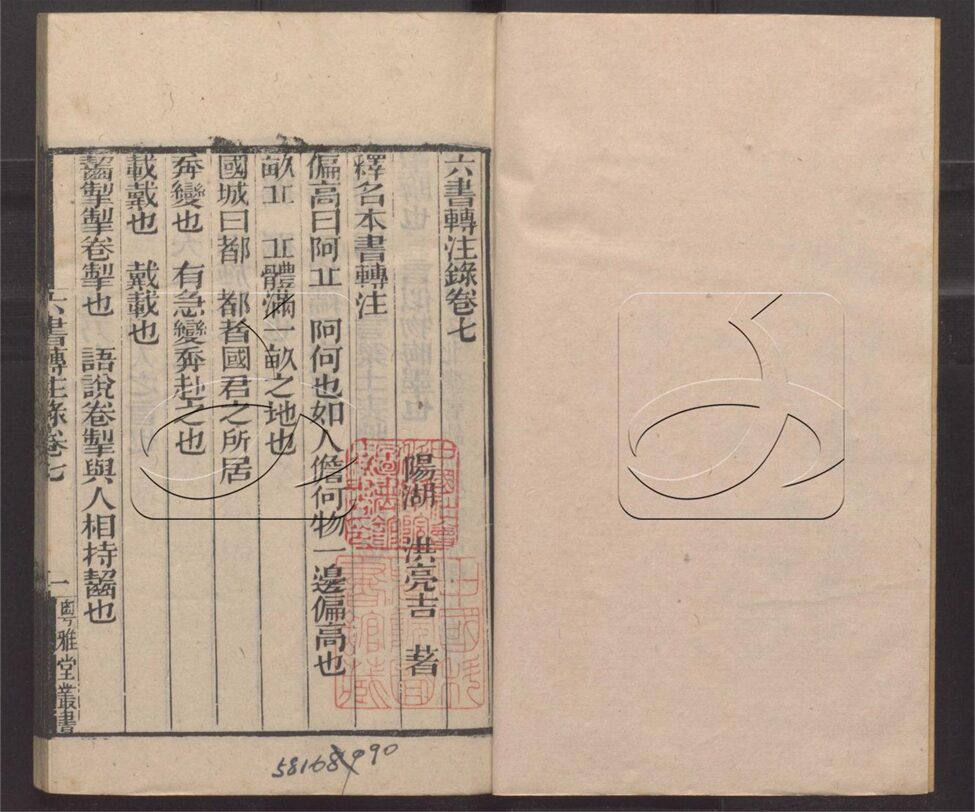 六書轉注錄卷七
陽湖 洪亮吉 著
釋名本書轉注
偏高曰阿㐀 阿何也如人儋何物一邊偏高也
畝㐀 㐀體滿一畝之地也
國城曰都 都者國君之所居
奔變也 有急變奔赴之也
載戴也 戴載也
齧掣掣卷掣也 語說卷掣與人相持齧也
六書轉注錄卷七
一
粵雅堂叢書
581689990